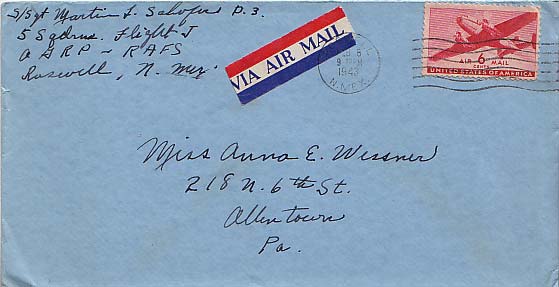 S/Sgt Martin L. Schofer P.3.
5 Sqdrn. Flight J
A A R P ~ R A F S
Roswell, N. Mex.
VIA AIR MAIL
9
1943
N. MEX.
AIR 6 MAIL
CENTS
UNITED STATES OF AMERICA
Miss Anna E. Wessner
218 N. 6th St.
Allentown
Pa.